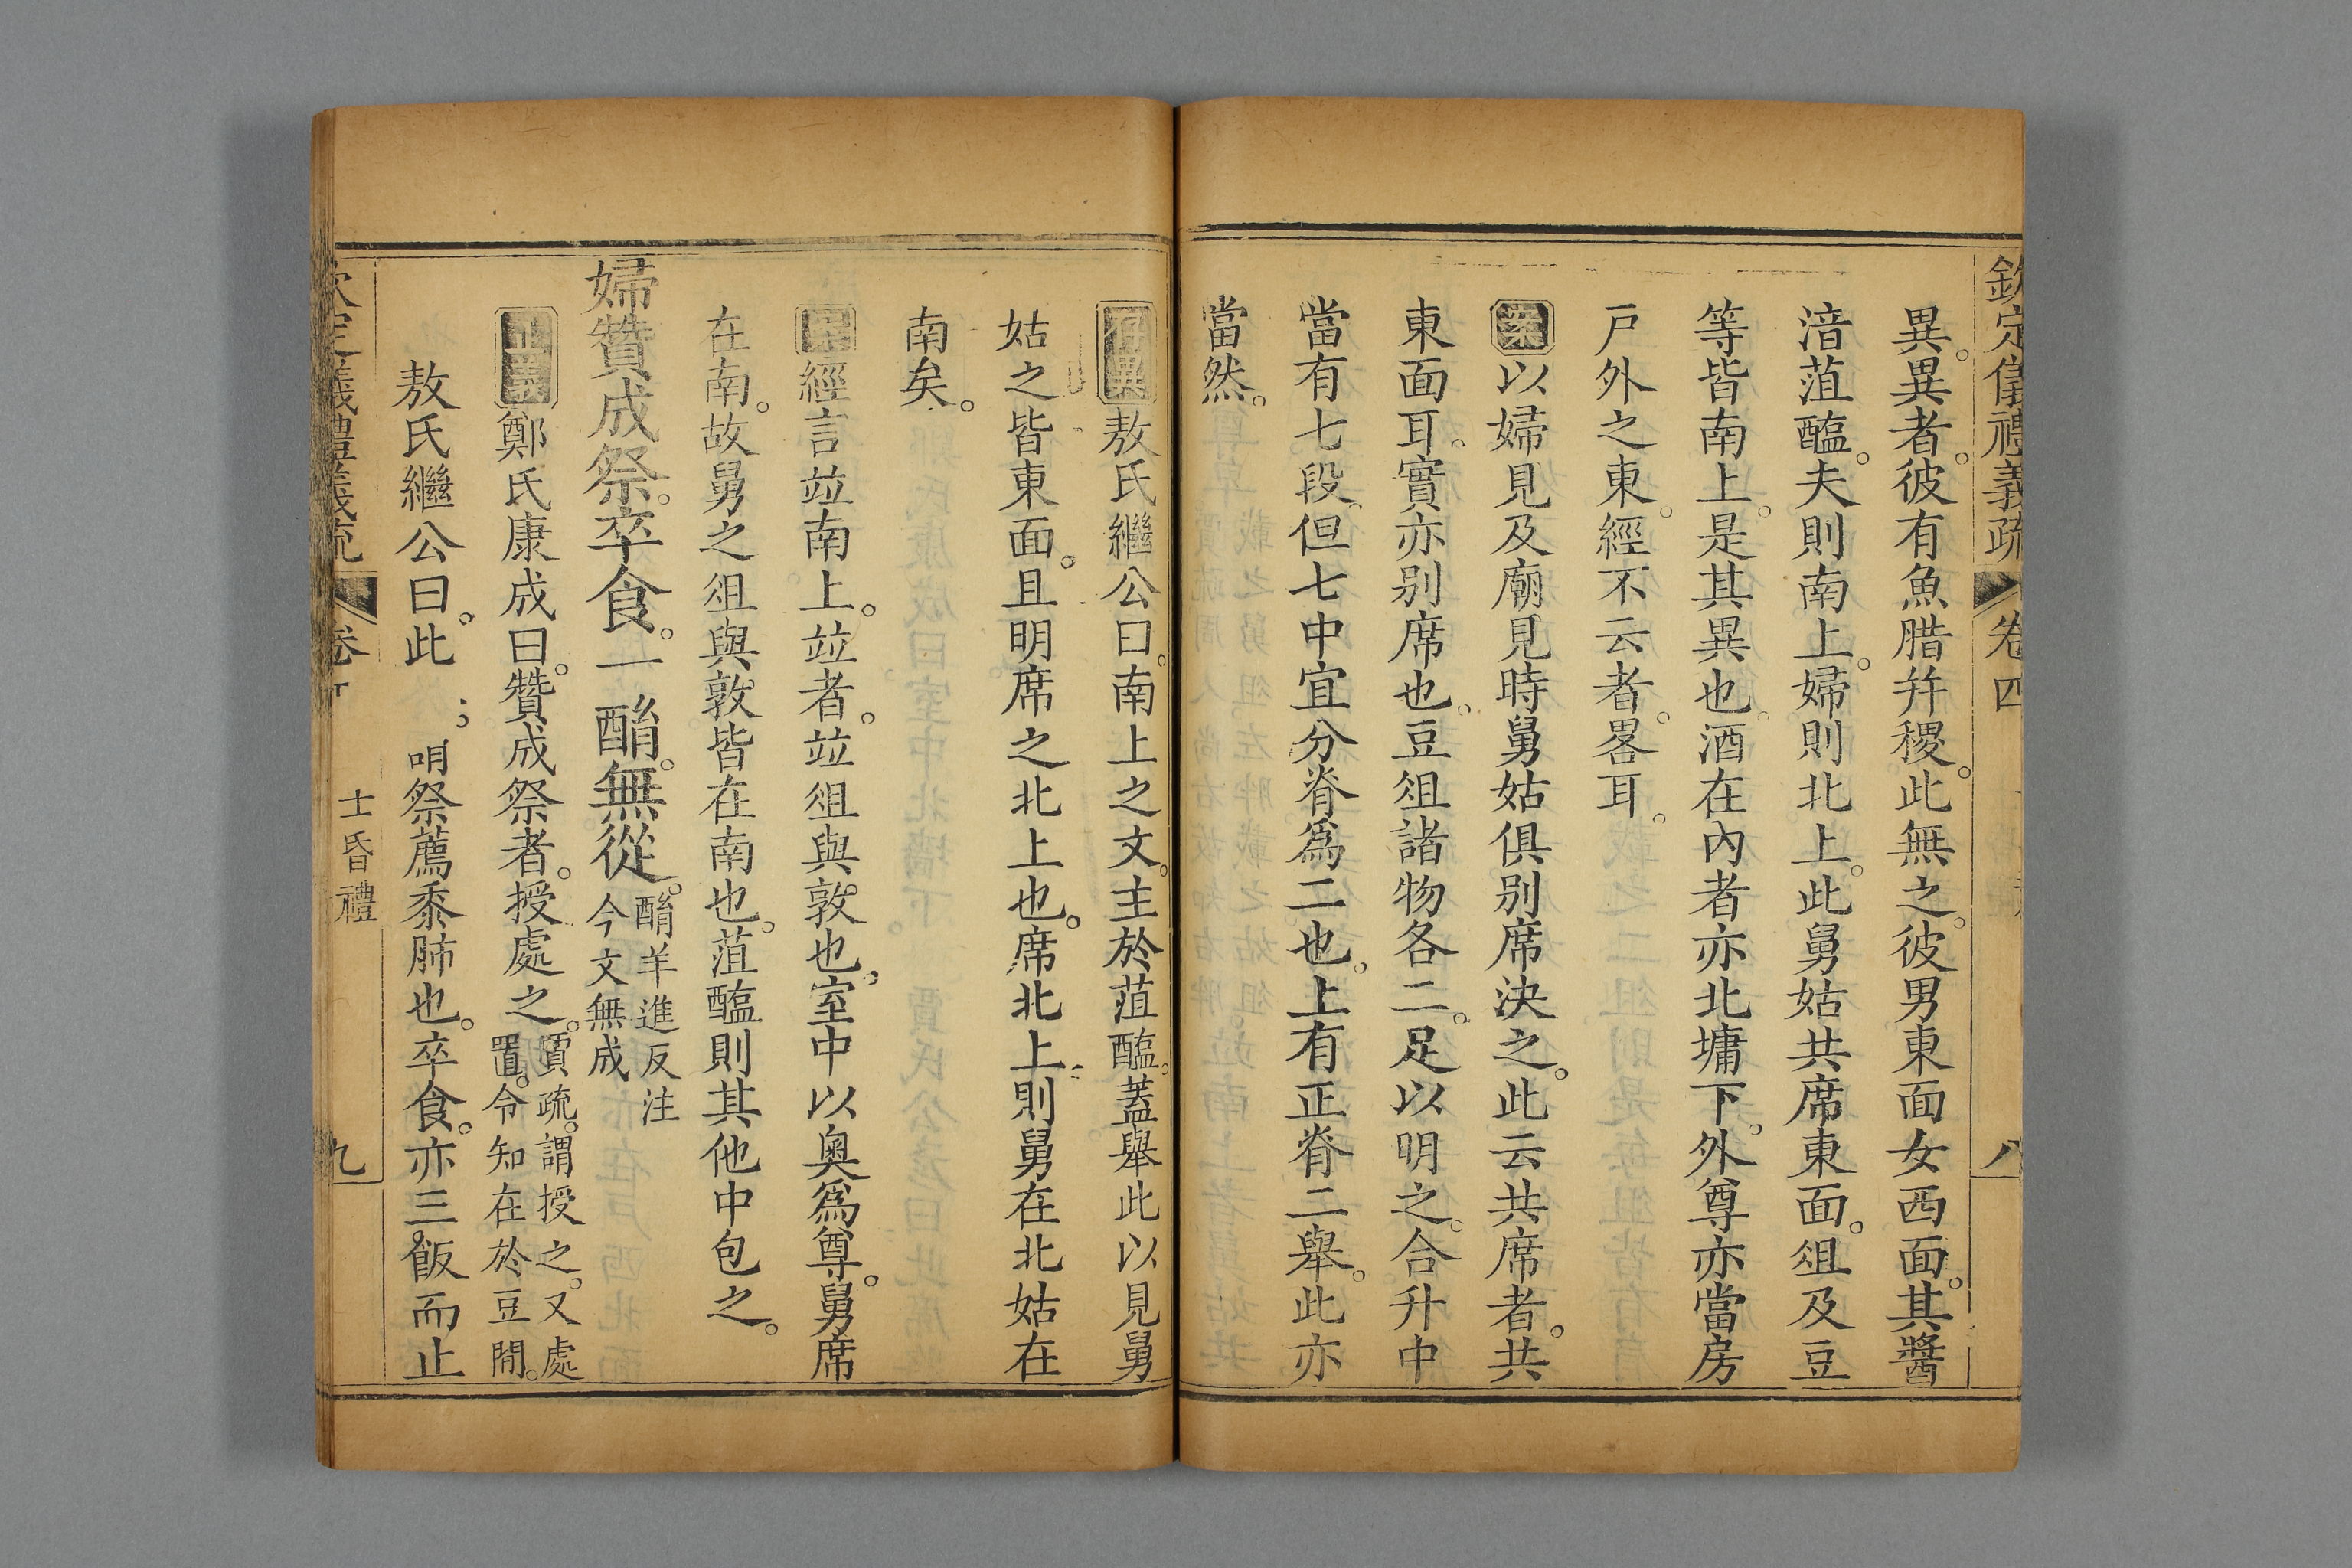 欽定儀禮義疏 卷四 八
異。異者。彼有魚腊幷稷。此無之。彼男東面女西面。其醬
湆菹醢。夫則南上。婦則北上。此舅姑共席東面。俎及豆
等皆南上。是其異也。酒在內者亦北墉下。外尊亦當房
戶外之東。經不云者。畧耳。
案以婦見及廟見時舅姑俱別席決之。此云共席者。共
東面耳。實亦別席也。豆俎諸物各二。足以明之。合升中
當有七段。但七中宜分脊為二也。上有正脊二舉。此亦
當然。
存異敖氏繼公曰。南上之文。主於菹醢。蓋舉此以見舅
姑之皆東面。且明席之北上也。席北上則舅在北姑在
南矣。
案經言竝南上。竝者。竝俎與敦也。室中以奧為尊。舅席
在南。故舅之俎與敦皆在南也。菹醢則其他中包之。
婦贊成祭。卒食。一酳。無從。酳羊進反注今文無成
正義鄭氏康成曰。贊成祭者。授處之。賈疏。謂授之。又處置。令知在於豆閒。
敖氏繼公曰。此 祭薦黍肺也。卒食。亦三飯而止
欽定儀禮義疏 卷 士昏禮 九